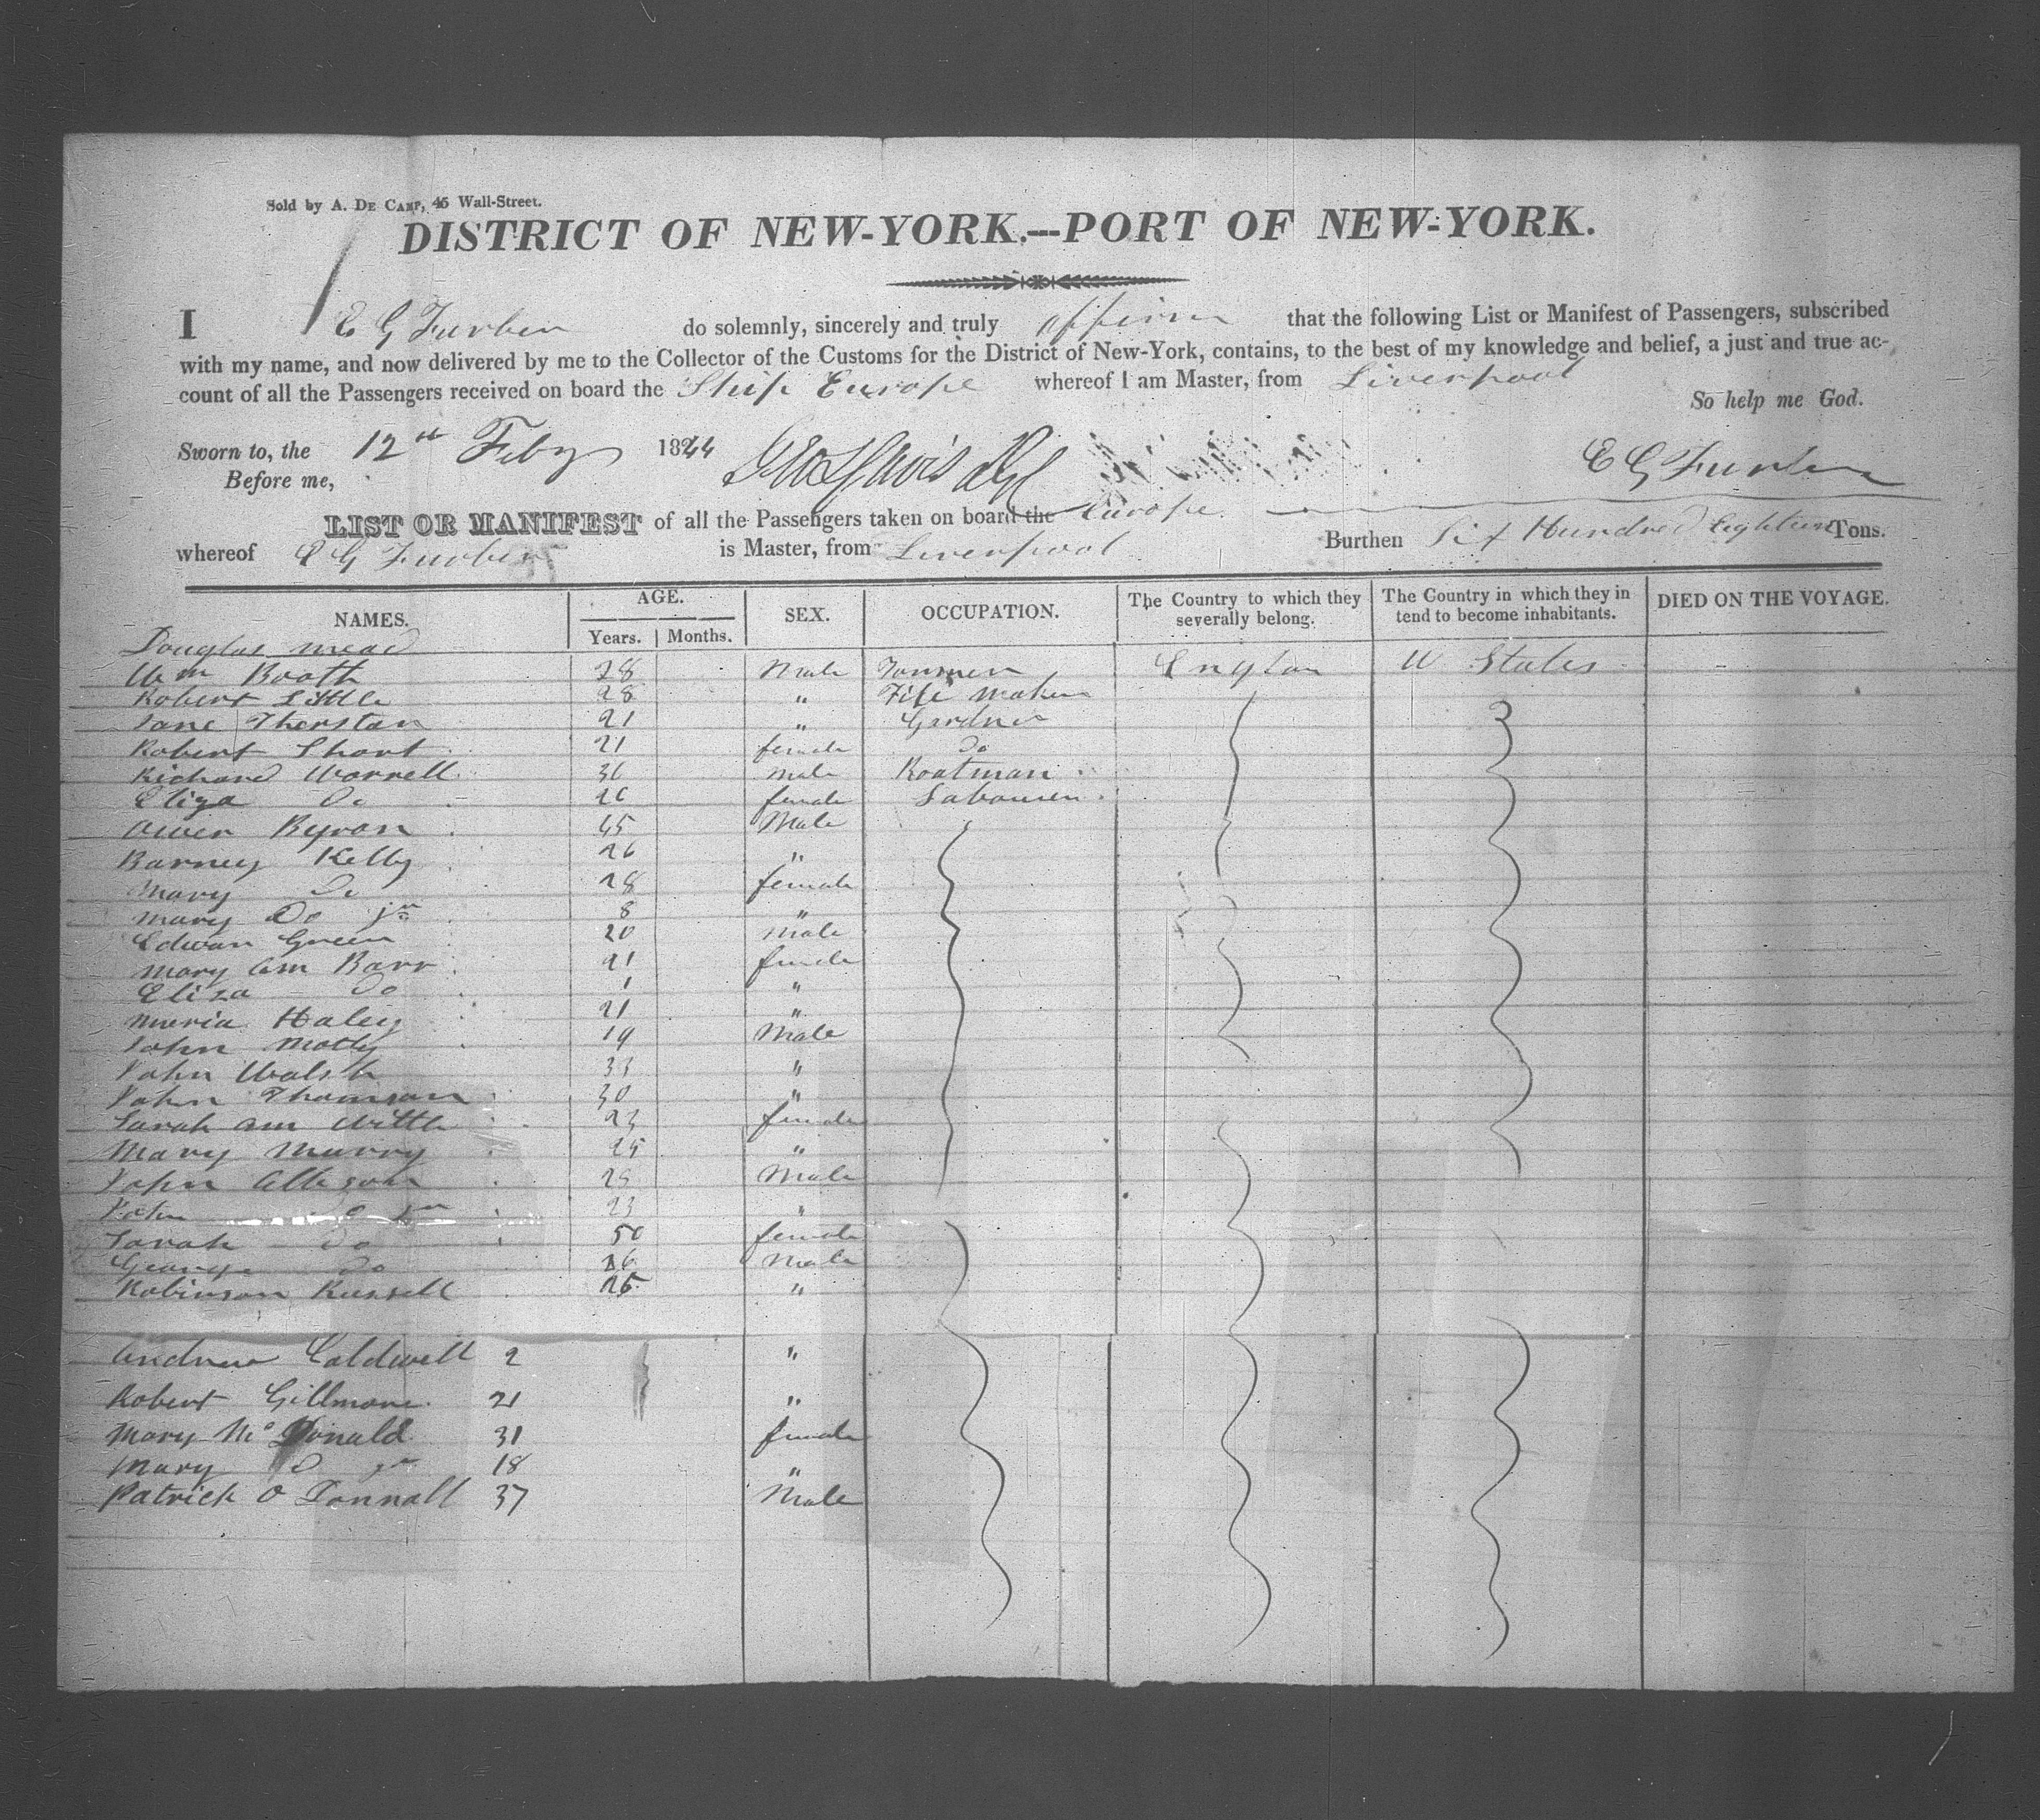 Sold by A. DE CAMP, 45 Wall-Street.
DISTRICT OF NEW-YORK.---PORT OF NEW-YORK.
I E G Furber do solemnly, sincerely and truly affirm that the following List or Manifest of Passengers, subscribed
with my name, and now delivered by me to the Collector of the Customs for the District of New-York, contains, to the best of my knowledge and belief, a just and true ac-
count of all the Passengers received on board the Ship Europe whereof I am Master, from Liverpool
So help me God.
Sworn to, the 12th Feby 1844 E G Furber
Before me,
LIST OR MANIFEST of all the Passengers taken on board the Europe
whereof E G Furber is Master, from Liverpool Burthen Six Hundred Eighteen Tons.
NAMES. AGE. Years. Months. SEX. OCCUPATION. The Country to which they severally belong. The Country in which they in tend to become inhabitants. DIED ON THE VOYAGE.
Douglas Mead
Wm Booth 28 Male England U States
Robert Little 28 " File Maker
Jane Thurstan 21 " Gardner
Robert Short 21 female Do
Richard Worrell 36 Male Boatman
Eliza Do 26 female Labourer
Owen Byron 45 Male
Barney Kelly 26 "
Mary Do 28 female
Mary Do jr 8 "
Edwan Green 20 Male
Mary Ann Barr 21 female
Eliza Do 1 "
Maria Haley 21 "
John Motly 19 Male
John Walsh 33 "
John Thomson 30 "
Sarah Ann Wittle 23 female
Mary Murry 25 "
John 25 Male
John Do jr 23 "
Sarah Do 50 female
George Do 26 Male
Robinson Russell 25 "
Andrew Caldwell 2 "
Robert Gillmore 21 "
Mary McDonald 31 female
Mary D jr 18 "
Patrick O Donnall 37 Male